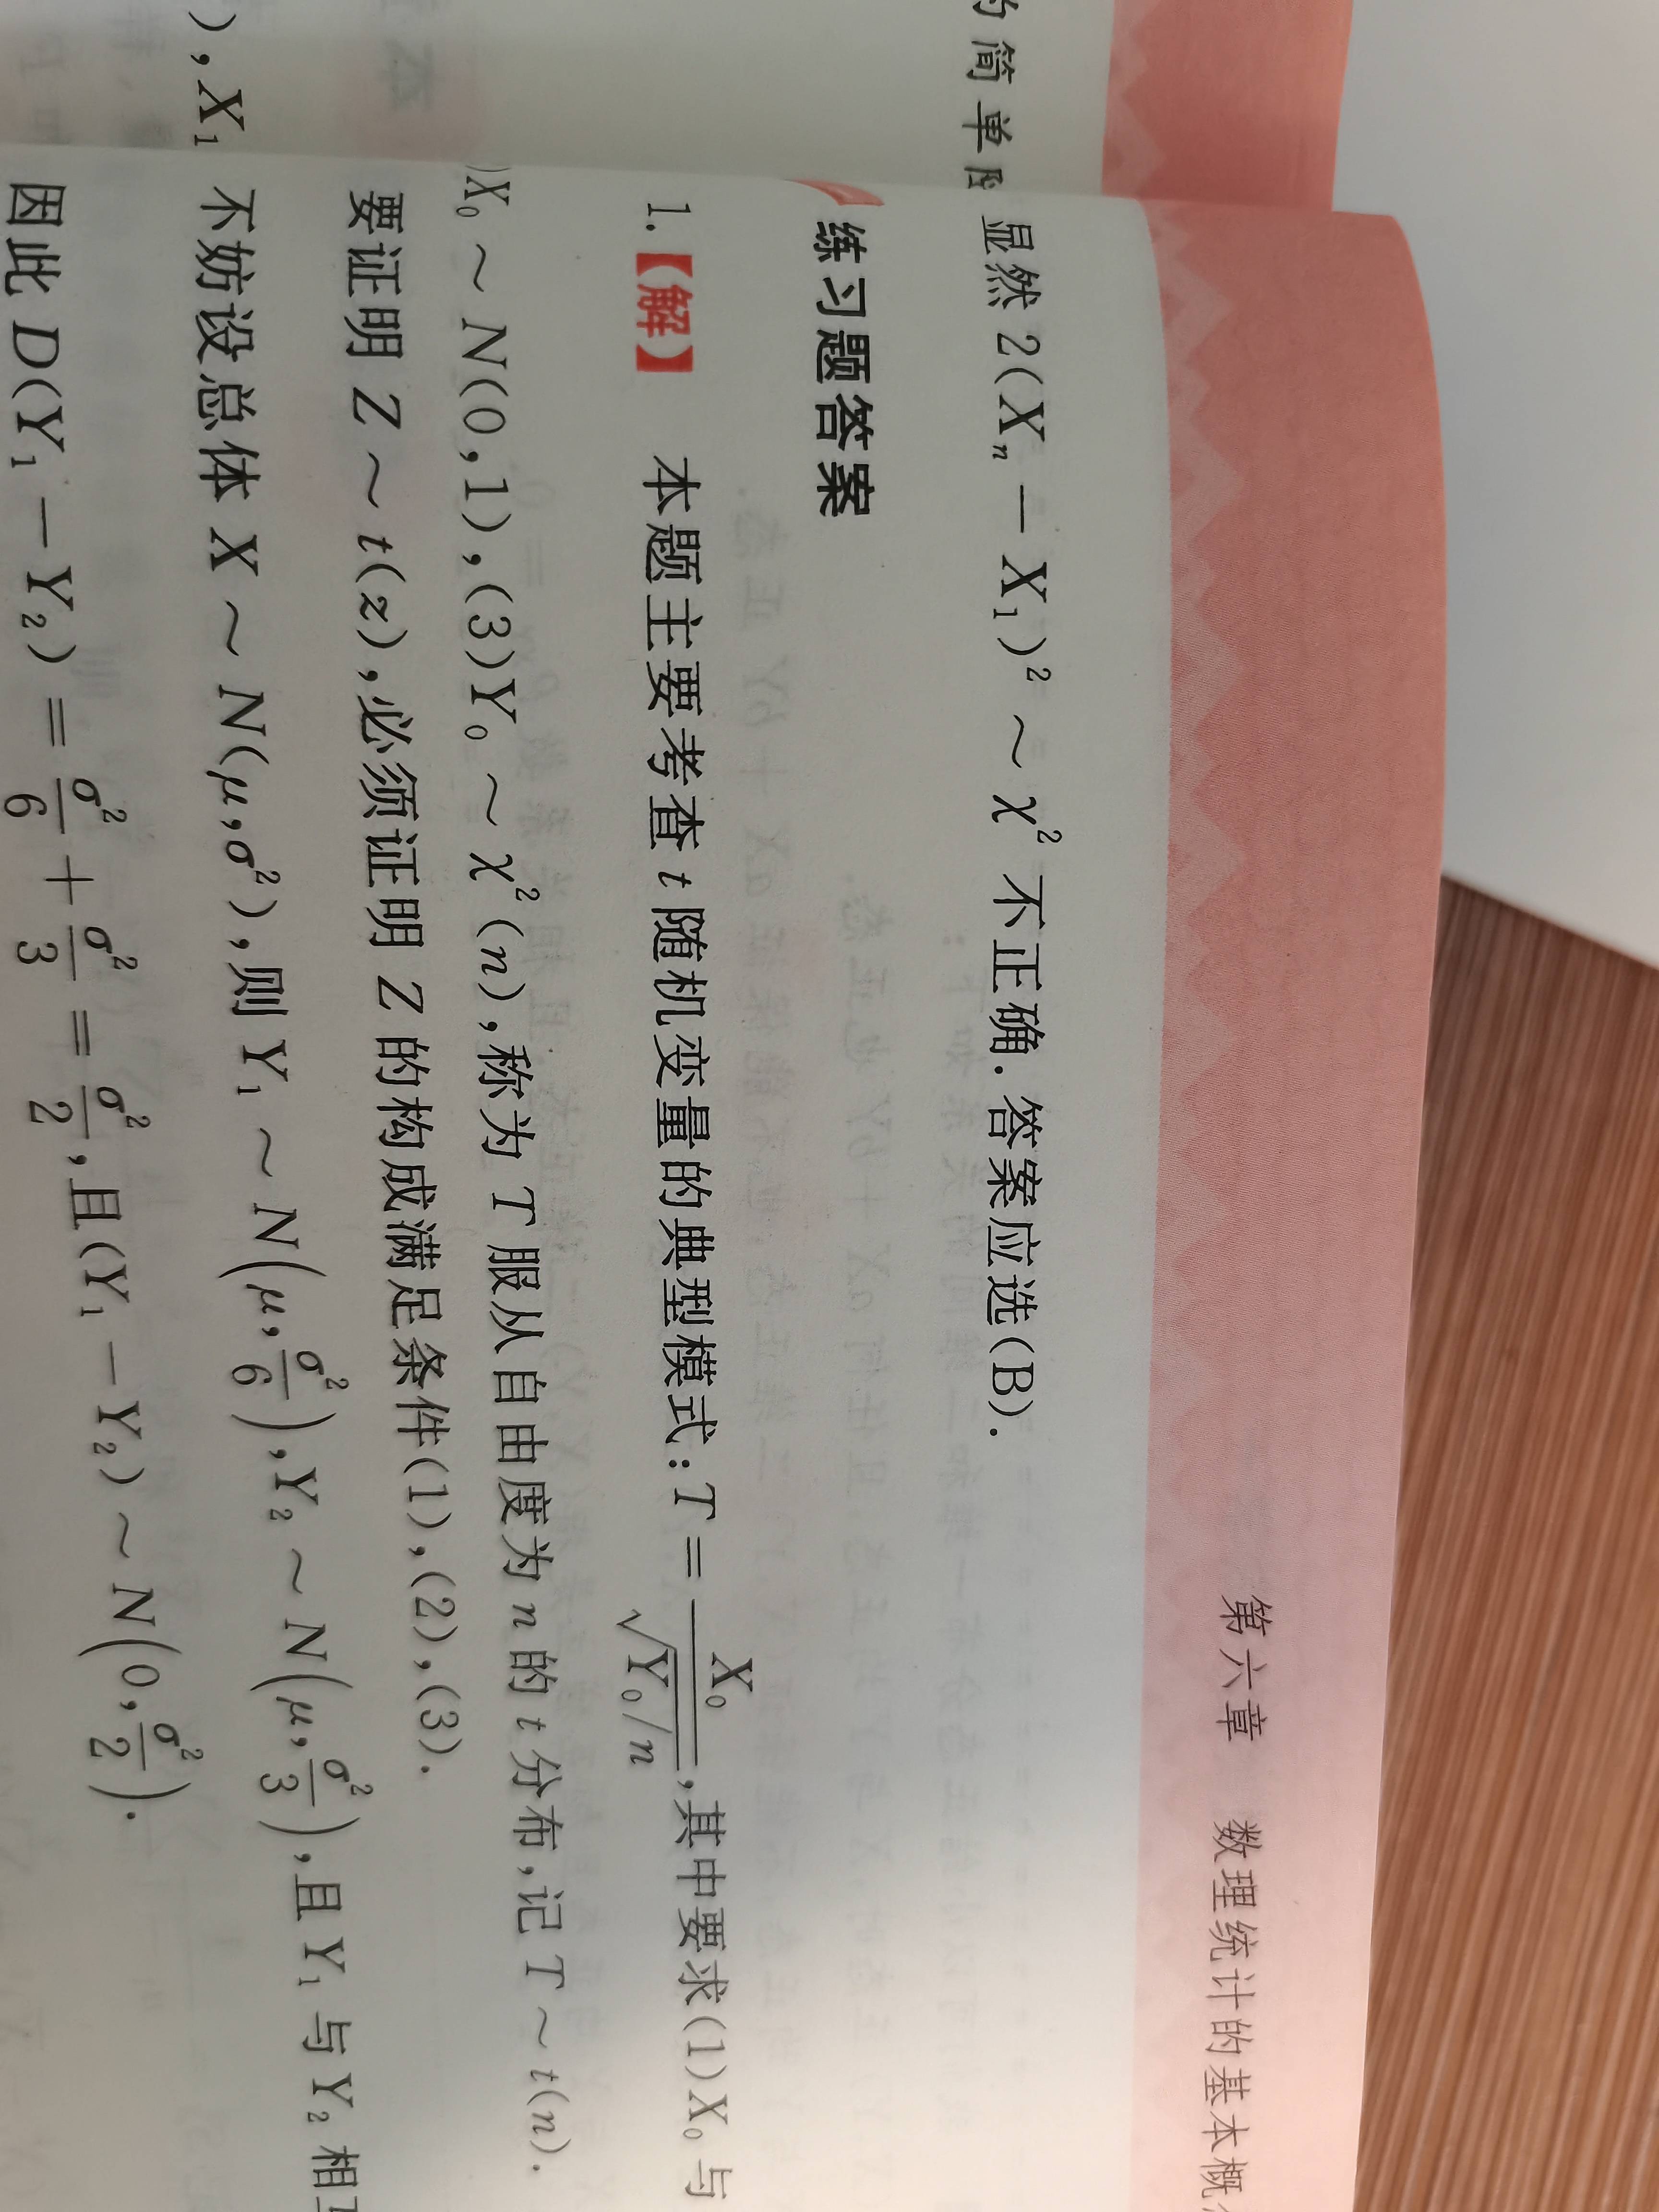 第六章 数理统计的基本概
的简单
显然 2(Xₙ − X₁)² ~ χ² 不正确. 答案应选(B).
练习题答案
1.【解】 本题主要考查 t 随机变量的典型模式: T = X₀/√(Y₀/n), 其中要求(1)X₀ 与
)X₀ ~ N(0,1),(3)Y₀ ~ χ²(n),称为 T 服从自由度为 n 的 t 分布,记 T ~ t(n).
要证明 Z ~ t(z),必须证明 Z 的构成满足条件(1),(2),(3).
),X₁
不妨设总体 X ~ N(μ,σ²),则 Y₁ ~ N(μ,σ²/6),Y₂ ~ N(μ,σ²/3),且 Y₁ 与 Y₂ 相
因此 D(Y₁ − Y₂) = σ²/6 + σ²/3 = σ²/2,且(Y₁ − Y₂) ~ N(0,σ²/2).